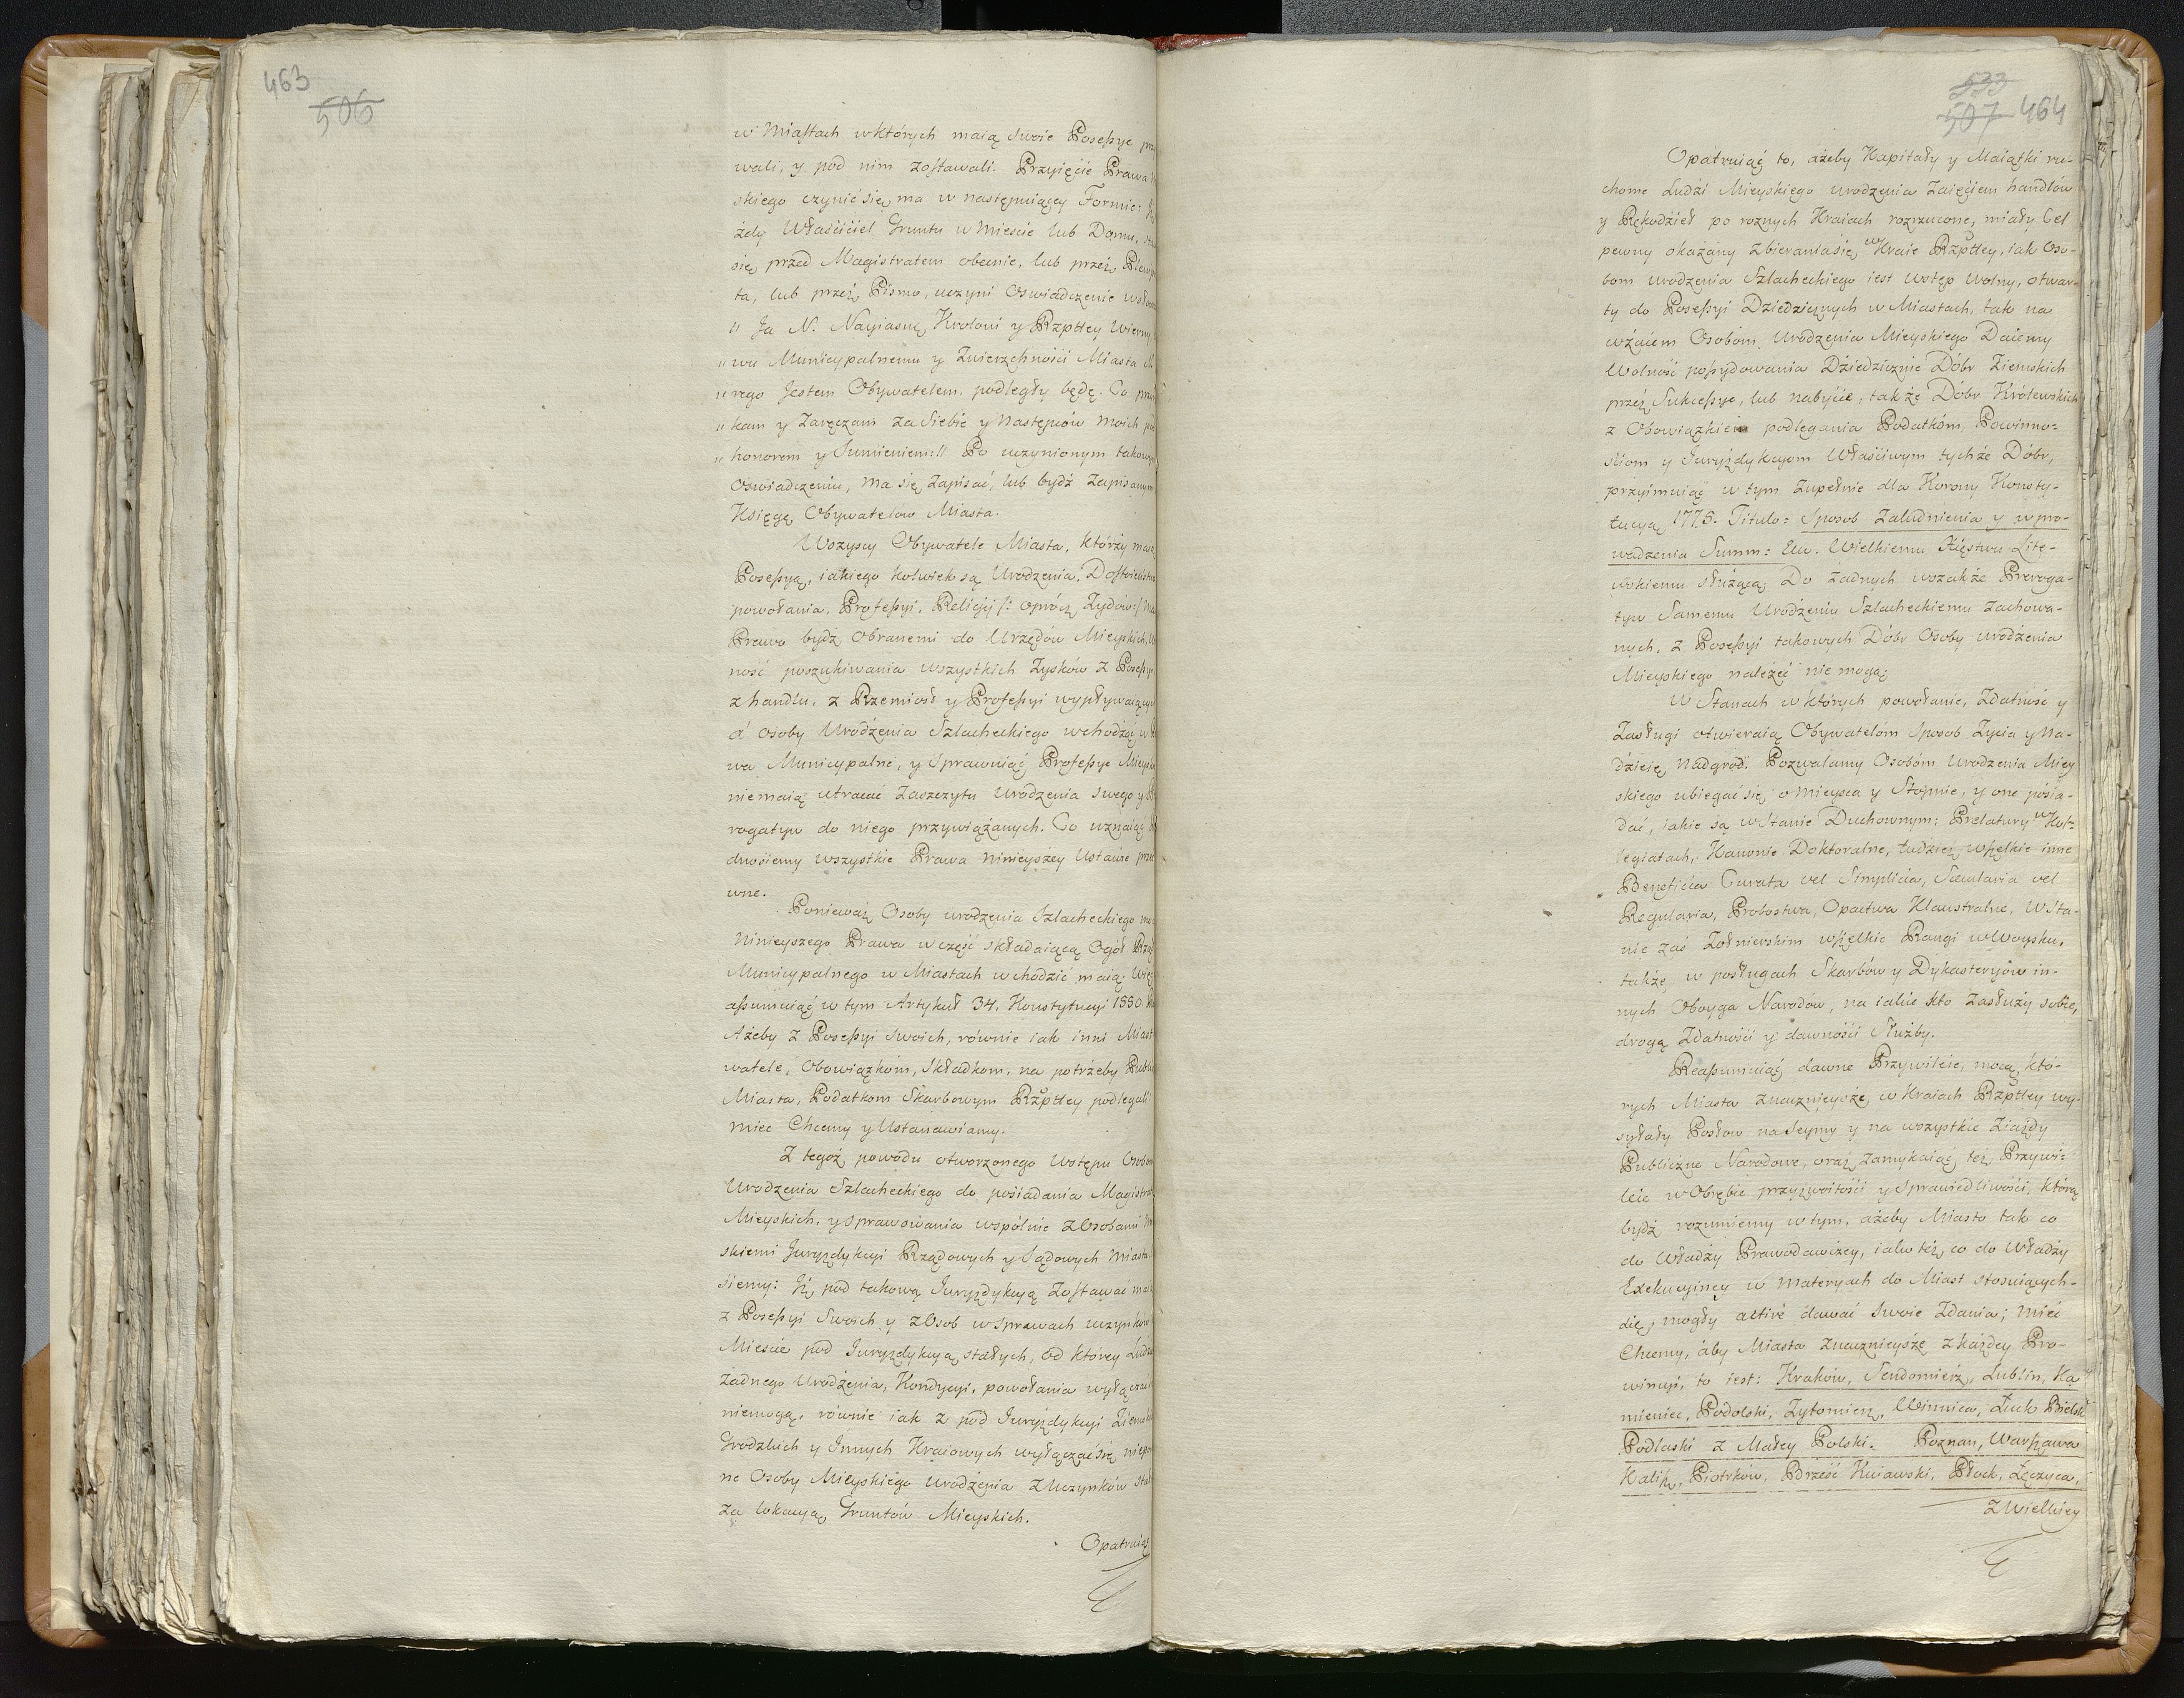 463
506
w Miaſtach w których maią swoie Poseſsye
wali, y pod nim zoſtawali. Przyięcie Prawa
skiego czynić się ma w następuiącey Formie:
żdy Właściciel Gruntu w Mieście lub Domu,
się przed Magistratem obecnie, lub przeż
ta, lub przeż Pismo, uczyni Oswiadczenie
" Ja N. Nayiasnię. Krolowi y Rzptley Wierny,
" wu Municypalnemu y Zwierzchności Miasta
" rego Jestem Obywatelem, podległy będę. Co
" kam y Zaręczam za Siebie y Następców Moich
" honorem y Sumieniem:// Po uczynionym
Oswiadczeniu, ma się Zapisać, lub bydź Zapisanym
Księgę Obywatelow Miasta.
Wszyscy Obywatele Miasta, którzy
Poseſsyą, iakiego kolwiek są Urodzenia,
powołania, Profeſsyi, Religij /: oprócz Zydów:/
Prawo bydź Obranemi do Urzędów Mieyskich,
ność poszukiwania wszystkich Zysków z
z handlu, z Rzemiosł y Profeſsyi
a osoby Urodzenia Szlacheckiego wchodząc
wa Municypalne, y Sprawuiąć Profeſsye
niemaią utracać Zaszczytu Urodzenia swego
rogatyw do niego przywiązanych. Co uznaiąc
dnosiemy wszystkie Prawa ninieyszey Ustawie
wne.
Ponieważ Osoby urodzenia Szlacheckiego
Ninieyszego Prawa w część składaiącą Ogół
Municypalnego w Miastach wchodzić maią;
aſsumuiąć w tym Artykuł 34. Konstytucyi 1550.
Ażeby z Poseſsyi swoich, równie iak inni
watele, Obowiązkom, Składkom, na potrzeby
Miasta, Podatkom Skarbowym Rzptley podlegali
mieć Chcemy y Ustanawiamy.
Z tegoż powodu otworzonego Wstępu
Urodzenia Szlacheckiego do posiadania
Mieyskich, y Sprawowania wspólnie z Osobami
skiemi Juryzdykcyi Rządowych y Sądowych
siemy: Iż pod takową Juryzdykcyą Zostawać
z Poseſsyi Swoich y z Osob w Sprawach
Mieście pod Juryzdykcyą stałych, Od którey
Żadnego Urodzenia, Kondycyi, powołania
niemogą, równie iak z pod Juryzdykcyi
Grodzkich y Innych Kraiowych wyłączać się
ne Osoby Mieyskiego Urodzenia z Uczynków
Za lokacyą Gruntów Mieyskich.
Opatruiąć
533
507 464
Opatruiąć to, ażeby Kapitały y Maiątki ru-
chome Ludzi Mieyskiego urodzenia Zaięciem handlów
y Rękodzieł po roznych Kraiach rozrzucone, miały Cel
pewny okazany zbierania się w Kraie Rzptley, iak Oso-
bom urodzenia Szlacheckiego iest wstęp Wolny, otwar-
ty do Poseſsyi Dziedzicznych w Miastach, tak na
wzaiem Osobom Urodzenia Mieyskiego Daiemy
Wolność poſsydowania Dziedzicznie Dóbr Ziemskich
przeż Sukceſsye, lub nabycie, także Dóbr Królewskich
z Obowiązkiem podlegania Podatkóm, Powinno-
ściom y Juryzdykcyom Właściwym tychże Dóbr,
przyimuiąc w tym Zupełnie dla Korony Konsty-
tucyą 1775. Titulo: Sposob Zaludnienia y wpro-
wadzenia Summ: Etc. Wielkiemu Xięstwu Lite-
wskiemu służącą; Do Zadnych wszakże Preroga-
tyw Samemu Urodzeniu Szlacheckiemu Zachowa-
nych, z Poseſsyi takowych Dóbr Osoby urodzenia
Mieyskiego należeć nie mogą;
W Stanach w których powołanie, Zdatność y
Zasługi otwieraią Obywatelóm Sposob Zycia y Na-
dzieię Nadgród. Pozwalamy Osobóm Urodzenia Miey
skiego ubiegać się o Mieysca y Stopnie, y one posia-
dać, iakie są w Stanie Duchownym: Prelatury w Kol-
legiatach, Kanonie Doktoralne, tudzież wſzelkie inne
Beneficia Curata vel Simplicia, Sæcularia vel
Regularia, Probostwa, Opactwa Klaustralne, W Sta-
nie zaś Żołnierskim wſzelkie Rangi w Woysku,
także w posługach Skarbów y Dykasteryów in-
nych Oboyga Narodów, na iakie kto Zasłuży sobie,
drogą Zdatności y dawności Służby.
Reaſsumuiąć dawne Przywileie, mocą, któ-
rych Miasta znacznieysze w Kraiach Rzptley wy-
syłały Posłow na Seymy y na wszystkie Ziazdy
Publiczne Narodowe, oraz zamykaiąc też Przywi-
leie w Obrębie przyzwoitości y Sprawiedliwości, którą
bydź rozumiemy w tym, ażeby Miasto tak co
do Władzy Prawodawczey, iako też co do Władzy
Exekucyiney w Materyach do Miast stosuiących-
się, mogły active dawać swoie Zdania; Mieć
Chcemy, aby Miasta Znacznieysze z każdey Pro-
wincyi, to iest: Kraków, Sendomierz, Lublin, Ka
mieniec, Podolski, Zytomierz, Winnica, Łuck Bielsk
Podlaski z Małey Polski. Poznan, Warſzawa
Kaliſz, Piotrków, Brześć Kuiawski, Płock, Łęczyca,
z Wielkiey